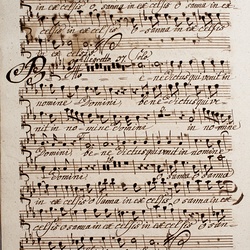 in excelsis o sanna in excelsis
in excelsis in excelsis o sanna in excelsis
Allegretto Solo
Benedictus qui venit in
nomine Domini bene dictus qui ve-
nit in no-mine domini in nomine
Domini bene dictus qui venit in nomine
domini o sanna o sanna
in excelsis o sanna in excelsis o sanna in ex
celsis in excelsis o sanna in excelsis